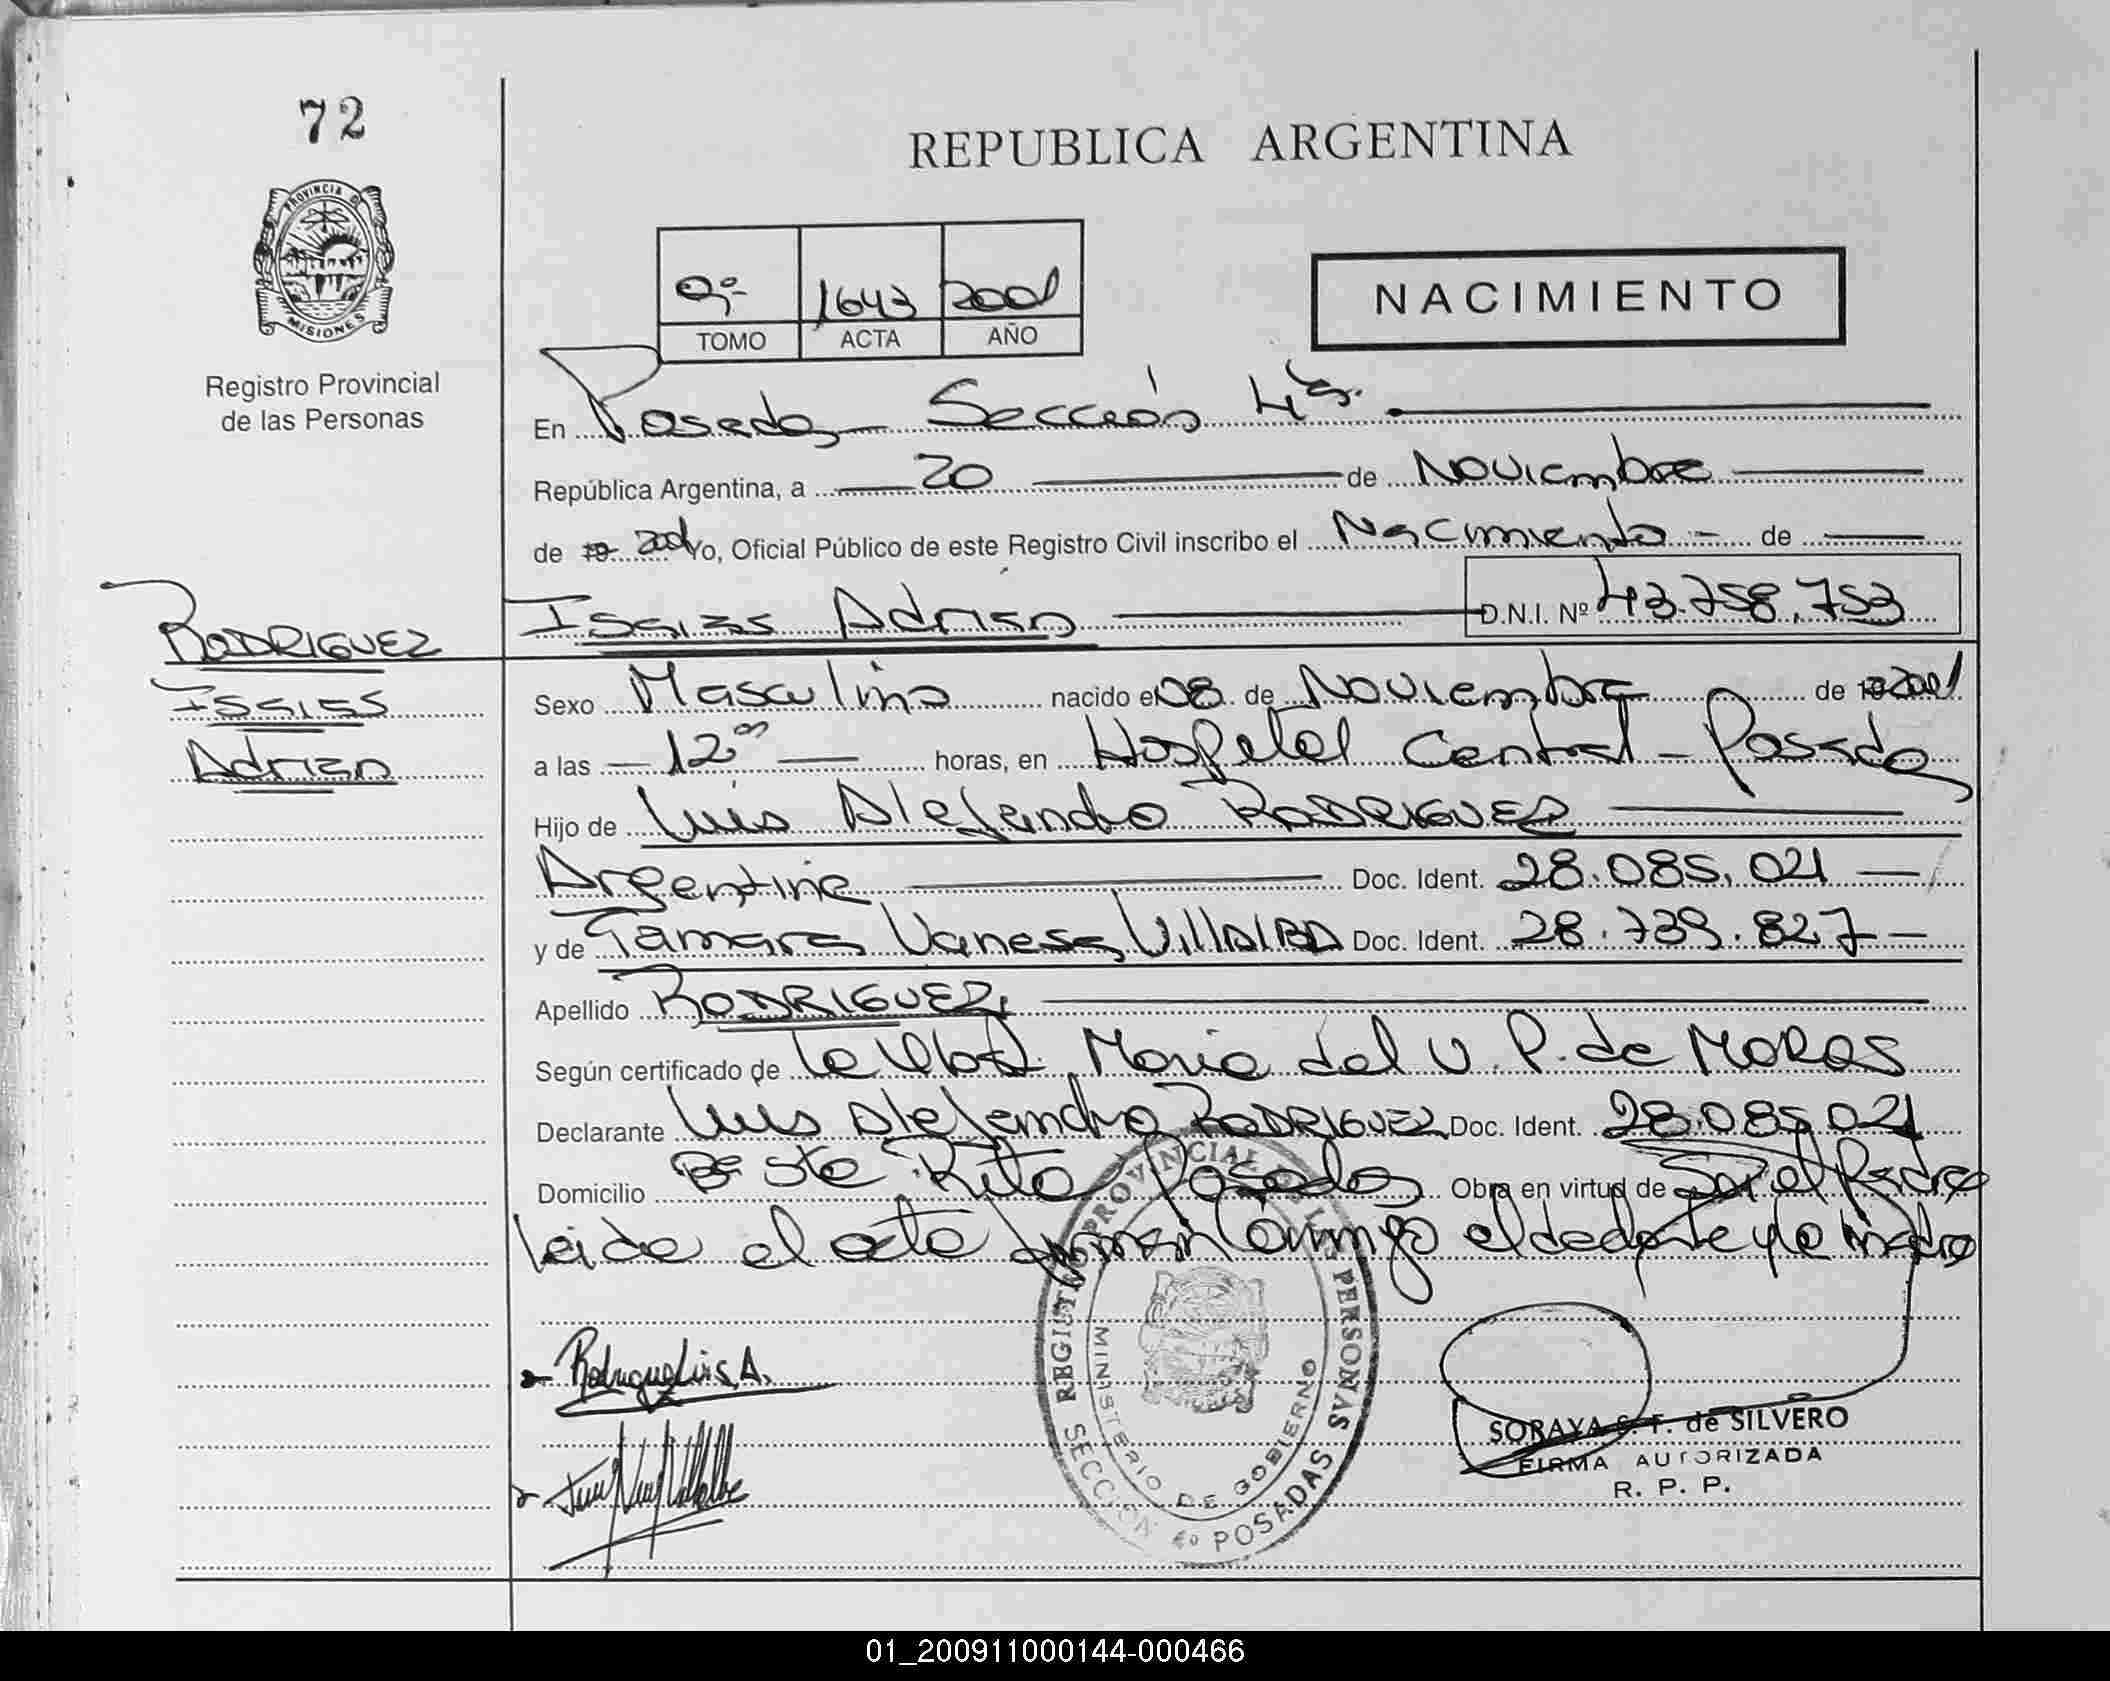 72
PROVINCIA DE
MISIONES
Registro Provincial
de las Personas
REPUBLICA ARGENTINA
9º 1643 2001
TOMO ACTA AÑO
NACIMIENTO
En Posadas Sección 4ta.
República Argentina, a 20 de Noviembre
de 19 2001 Yo, Oficial Público de este Registro Civil inscribo el Nacimiento de
Isaias Adrian D.N.I. Nº 43.758.753
RODRIGUEZ
Isaias
Adrian
Sexo Masculino nacido el 08 de Noviembre de 19 2001
a las 12.00 horas, en Hospital Central - Posadas
Hijo de Luis Alejandro RODRIGUEZ
Argentina Doc. Ident. 28.085.021
y de Tamara Vanesa VillAlBA Doc. Ident. 28.739.827
Apellido RODRIGUEZ
Según certificado de la Obst. Maria del V. P. de MORAS
Declarante Luis Alejandro RODRIGUEZ Doc. Ident. 28.085.021
Domicilio Bº Sta Rita Posadas Obra en virtud de Ser el Padre
leida el acta firman conmigo el declarante y la madre
Rodriguez Luis A.
REGISTRO PROVINCIAL DE LAS PERSONAS
MINISTERIO DE GOBIERNO
SECCION 4º POSADAS
SORAYA S. F. de SILVERO
FIRMA AUTORIZADA
R. P. P.
01_200911000144-000466